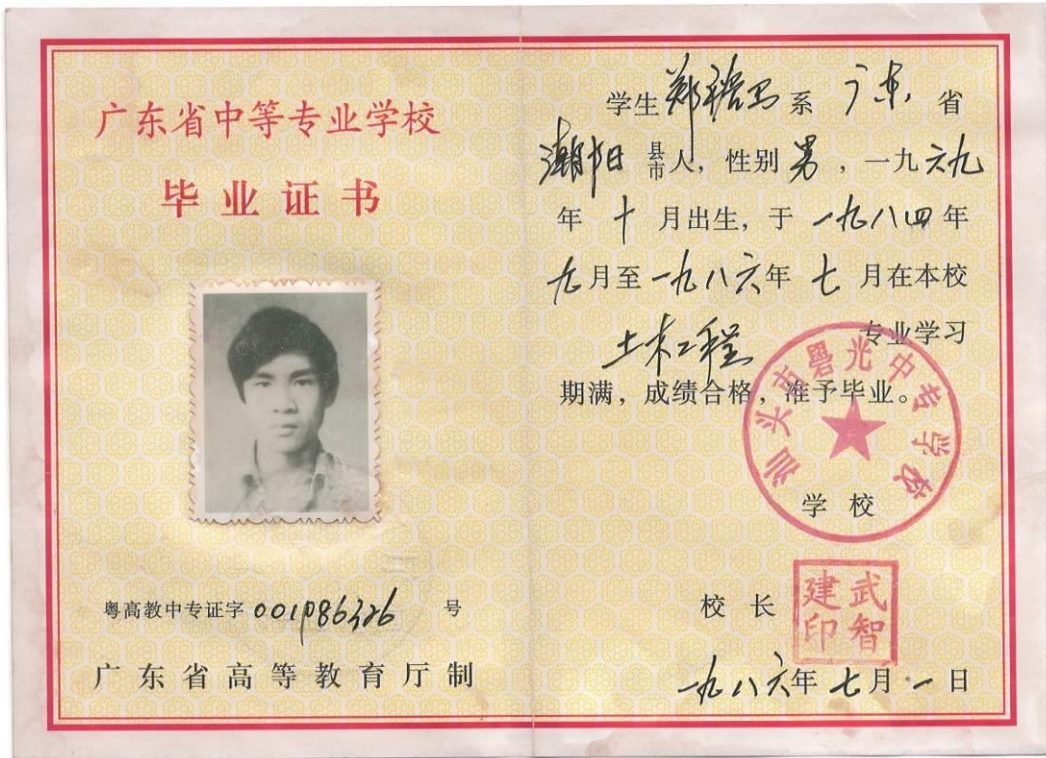 广东省中等专业学校
毕业证书
粤高教中专证字 001986326 号
广东省高等教育厅制
学生 郑 系 广东 省
潮阳 县市人，性别 男，一九六九
年 十 月出生，于 一九八四年
九月至一九八六年 七 月在本校
土木工程 专业学习
期满，成绩合格，准予毕业。
汕头市粤光中专学校
学校
校长
武智建印
一九八六年 七月 一日